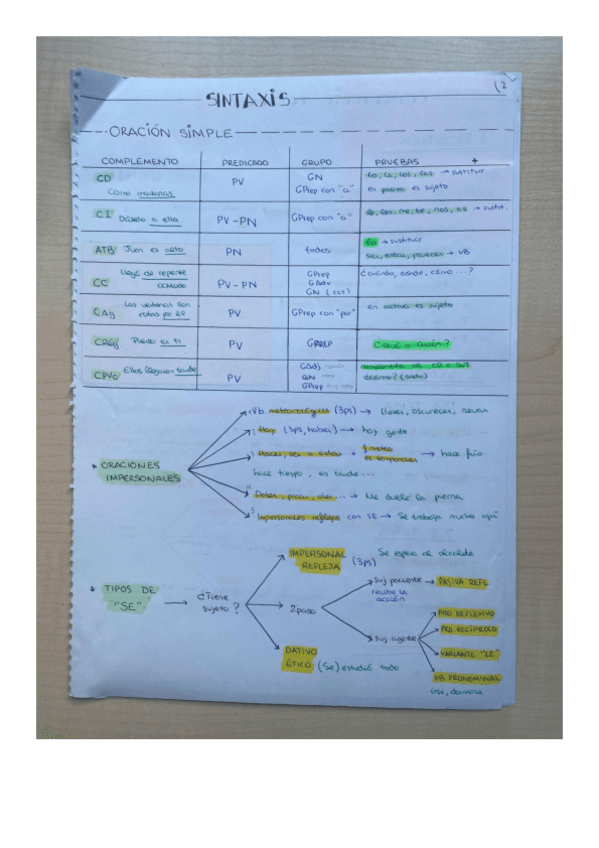 (2
SINTAXIS
ORACIÓN SIMPLE
COMPLEMENTO PREDICADO GRUPO PRUEBAS +
CD PV GN lo, la, los, las → sustituir
Como manzanas GPrep con "a" en pasiva es sujeto
CI Díselo a ella PV-PN GPrep con "a" le, les, me, te, nos, os → sustit.
ATB Juan es alto PN todos lo → sustituir
ser, estar, parecer → VB
CC Llegó de repente PV-PN GPrep ¿cuándo, dónde, cómo...?
CCModo GAdv
GN (CCT)
CAg Las ventanas son rotas por él PV GPrep con "por" en activa es sujeto
CReg Pienso en ti PV GPREP
CPVO Ellos llegaron tarde PV GAdj
GN ¿cómo?
GPrep
ORACIONES IMPERSONALES
Vb meteorológicos (3ps) → llover, oscurecer, nevar
Hay (3ps, haber) → hay gente
Hacer, ser o estar + → hace frío
hace tiempo, es tarde...
Doler, picar, oler... → Me duele la pierna
Impersonales reflejas con SE → Se trabaja mucho aquí
TIPOS DE "SE" → ¿Tiene sujeto?
IMPERSONAL REFLEJA (3ps) Se espera al alcalde
2 paso
Suj paciente → PASIVA REFL
recibe la acción
Suj. agente
PRO REFLEXIVO
PRO. RECÍPROCO
VARIANTE "LE"
VB PRONOMINAL
irse, dormirse
DATIVO ÉTICO (Se) estudió todo